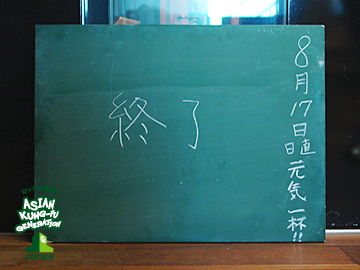 8月17日
日直 元気一杯!!
終了
ASIAN
KUNG-FU
GENERATION